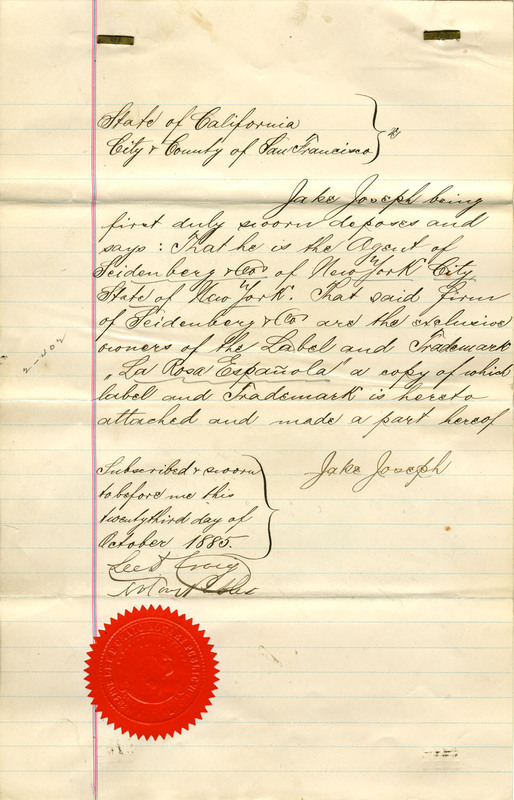 State of California
City & County of San Francisco } ss
Jake Joseph being
first duly sworn deposes and
says: That he is the Agent of
Seidenberg & Co of New York City
State of New York. That said firm
of Seidenberg & Co are the exclusive
owners of the Label and Trademark
„La Rosa Española" a copy of which
label and Trademark is hereto
attached and made a part hereof
Jake Joseph
Subscribed & sworn
to before me this
twentythird day of
October 1885
Lee D Craig
Notary Public